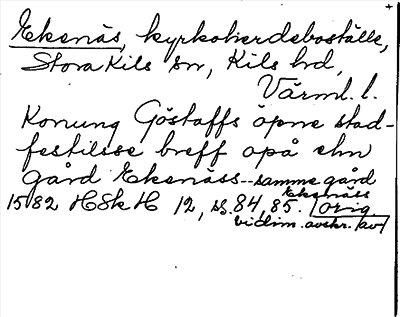 Ekenäs, kyrkoherdeboställe,
Stora Kils sn, Kils hd,
Värml. l.
Konung Göstaffs öpne stad-
festilsse breff opå ehn
gård Ekenäss -- samme gård
Ekenäss
1582 HSkH 12, ss. 84, 85. orig.
vidim. avskr. av